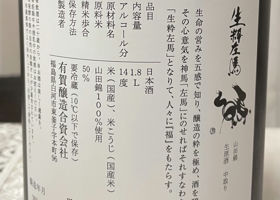 生粋左馬
山田錦
生原酒 中取り
生命の営みを五感で知り、醸造の粋を極め、酒を
その心意気を神馬〝左馬〟にのせればそれすなわ
「生粋左馬」となりて、人々に『福』をもたらす。
品目 日本酒
内容量 1.8L
アルコール分 14度
原材料名 米(国産)、米こうじ(国産米)
原料米 山田錦100%使用
精米歩合 50%
保存方法 要冷蔵(10℃以下で保存)
製造者 有賀醸造合資会社
福島県白河市東釜子字本町96
製造年月